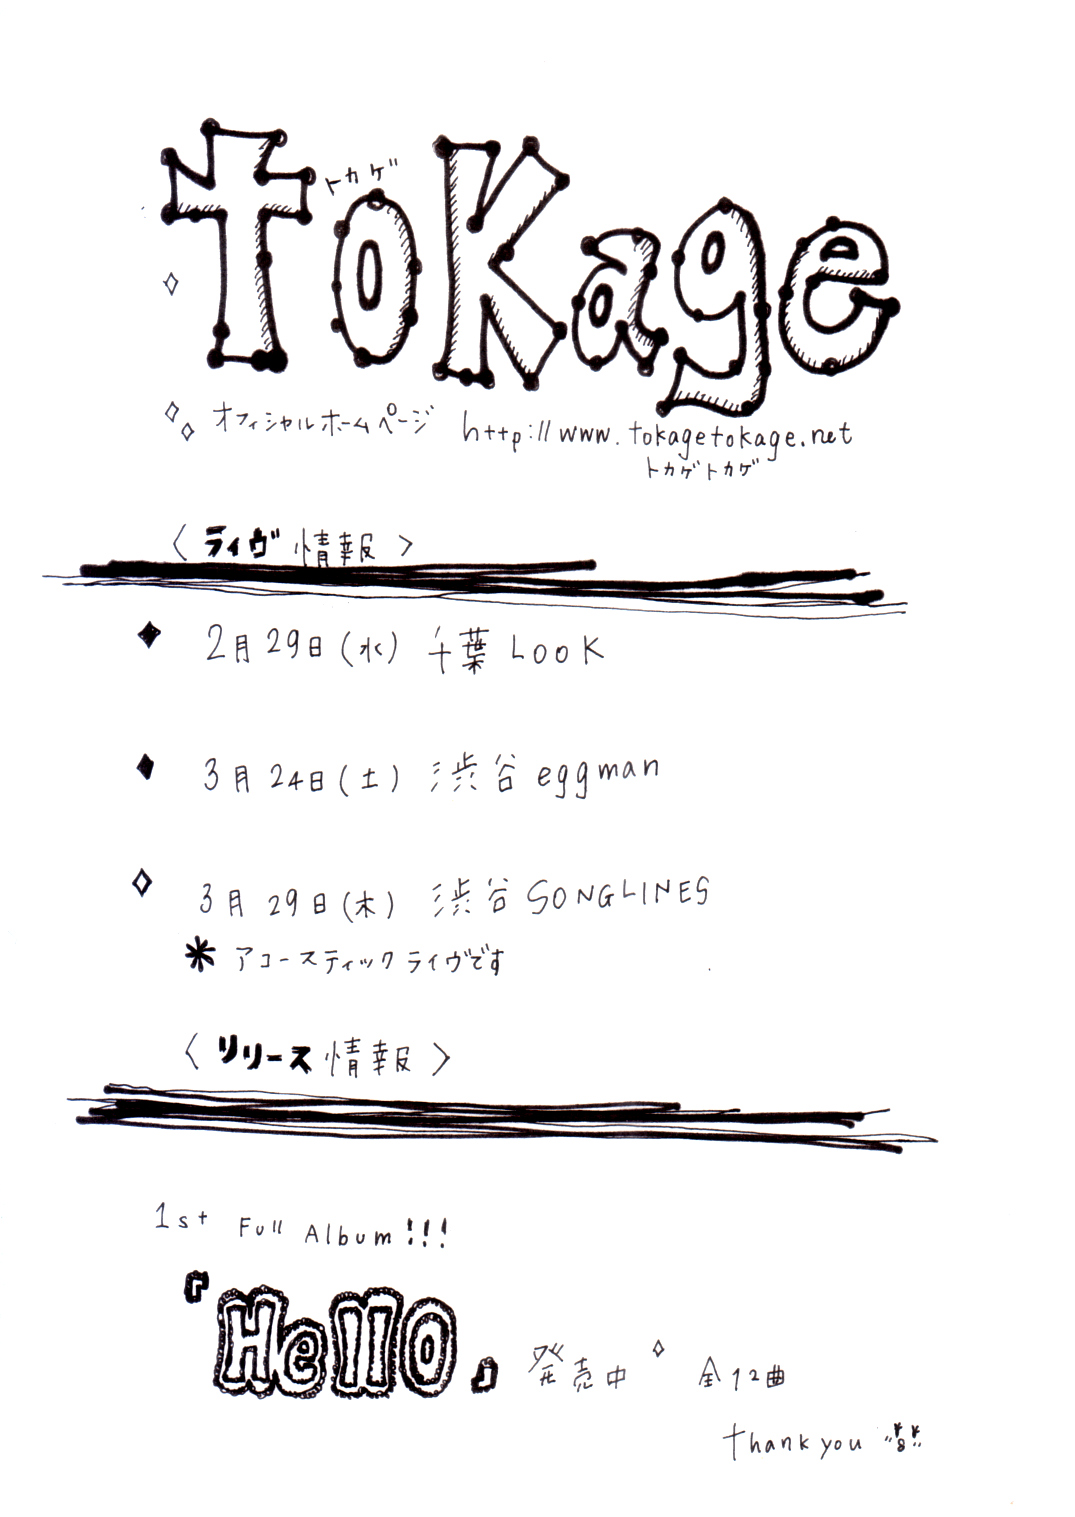 トカゲ
toKage
オフィシャルホームページ http://www.tokagetokage.net
トカゲトカゲ
〈ライヴ情報〉
2月29日(水) 千葉LOOK
3月24日(土) 渋谷eggman
3月29日(木) 渋谷SONGLINES
＊アコースティックライヴです
〈リリース情報〉
1st Full Album!!!
『Hello』発売中 全12曲
thank you